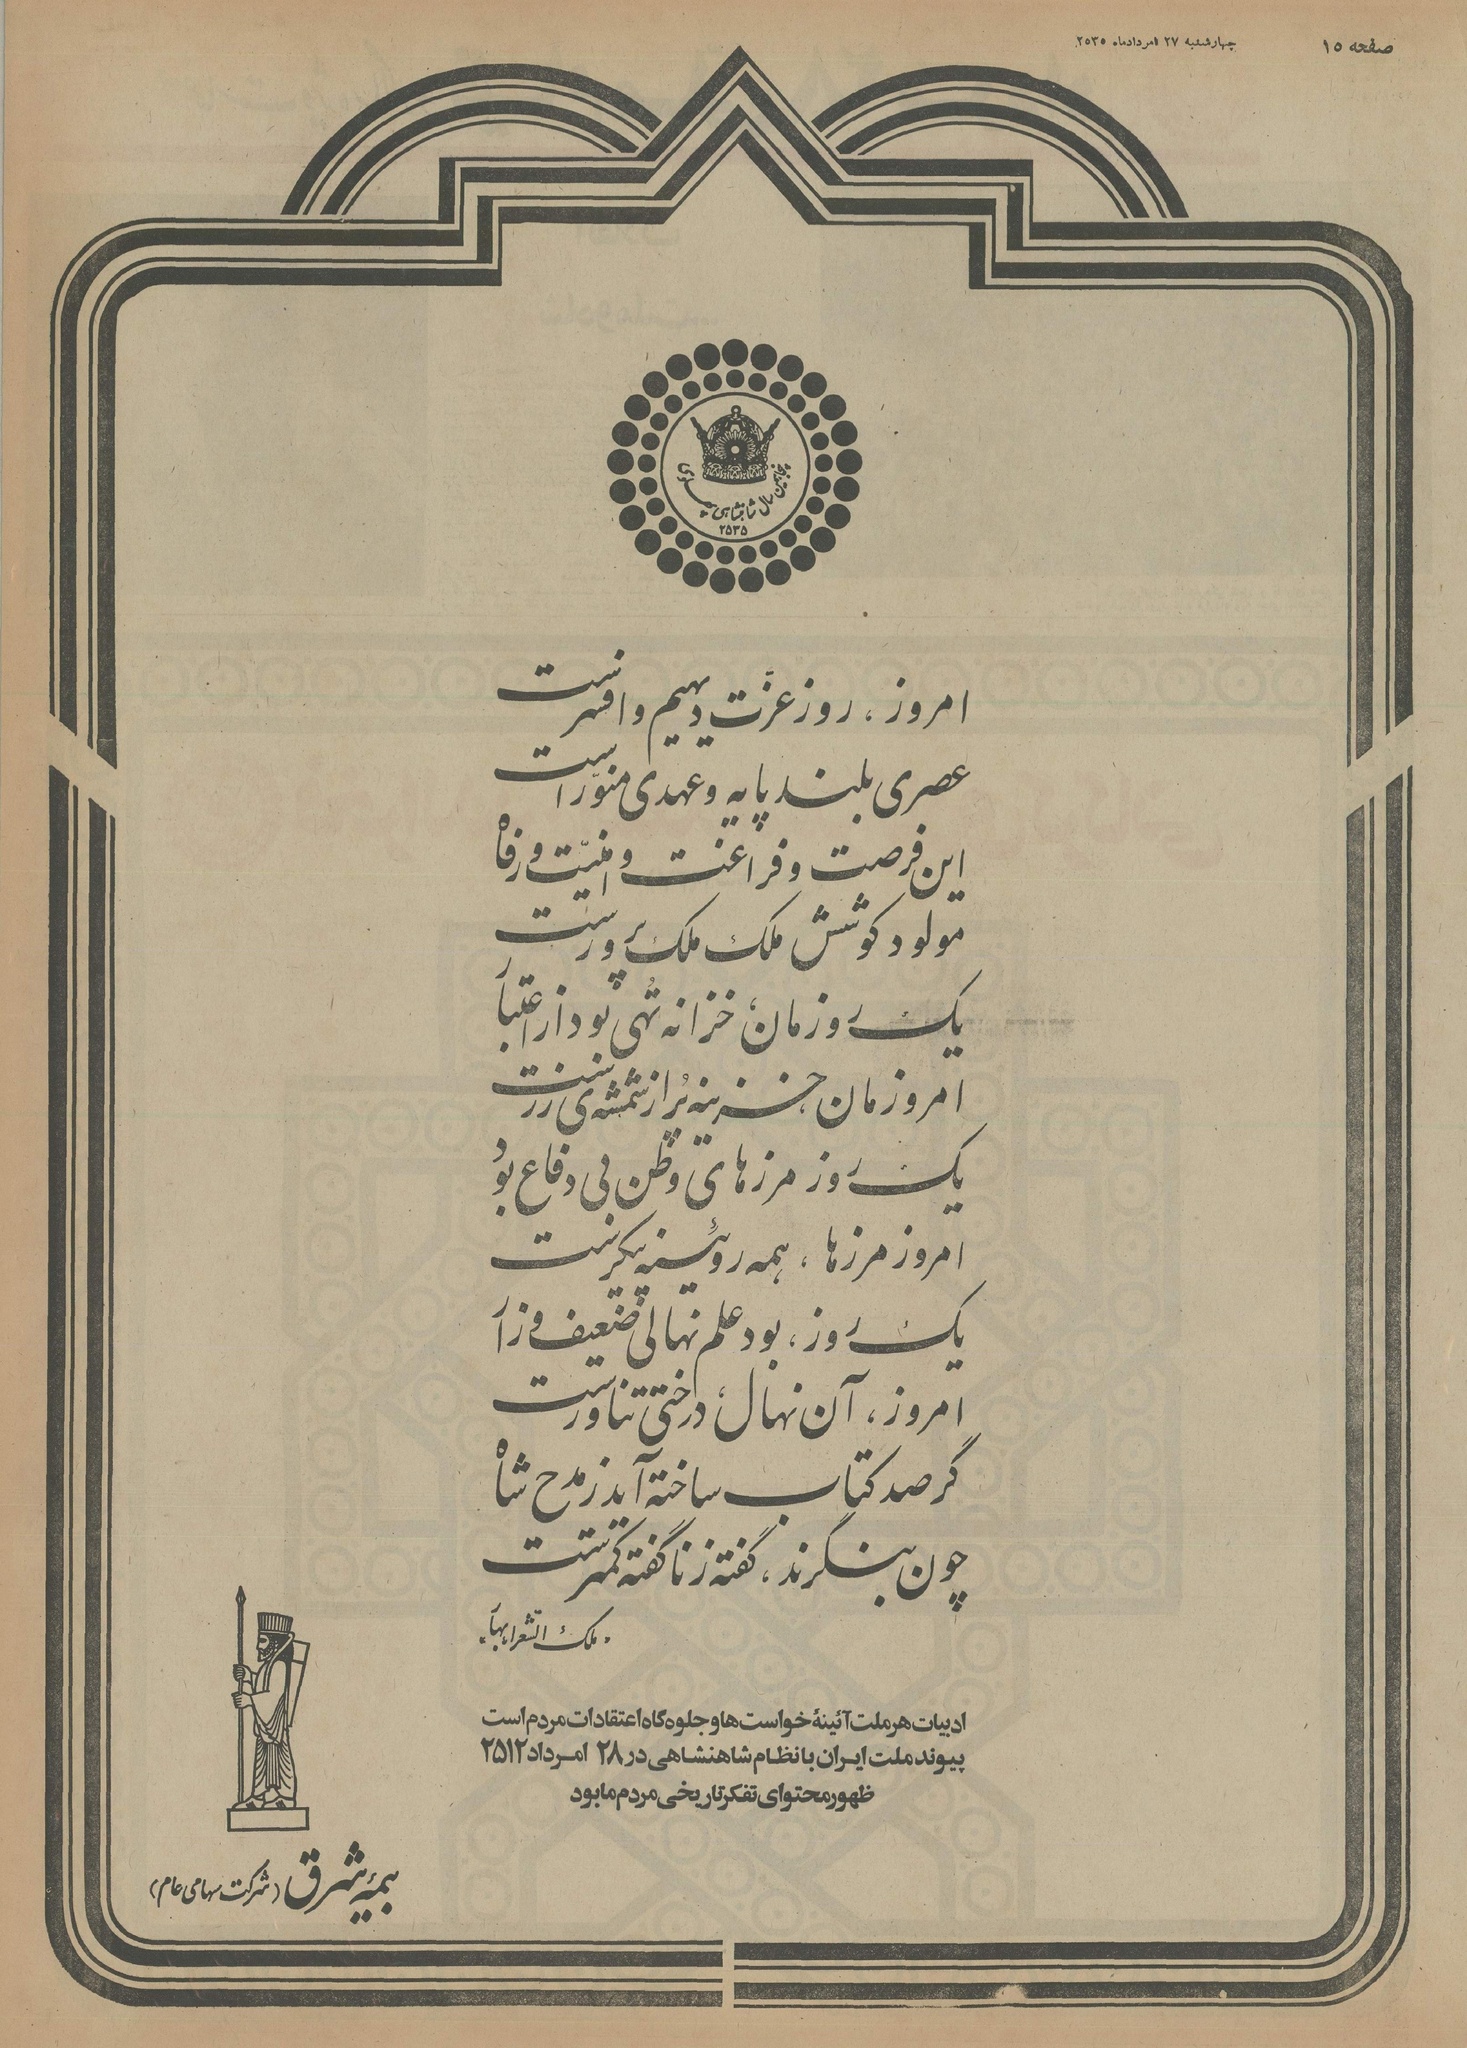 صفحه ۱۵
چهارشنبه ۲۷ امردادماه ۲۵۳۵
پنجاهمین سال شاهنشاهی پهلوی
۲۵۳۵
امروز، روز عزّت دیهیم و افسرست
عصری بلند پایه و عهدی منوّر است
این فرصت و فراغت و امنیّت و رفاه
مولود کوشش ملک ملک پرورست
یک روزمان، خزانه تُهی بود از اعتبار
امروزمان، خزینه پُر از شمشه‌ی زرست
یک روز مرزهای وطن بی دفاع بود
امروز مرزها، همه روئینه پیکرست
یک روز، بود علم نهالی ضعیف و زار
امروز، آن نهال، درختی تناورست
گر صد کتاب ساخته آید ز مدح شاه
چون بنگرند، گفته ز ناگفته کمترست
ملک الشعراء بهار
ادبیات هر ملت آئینهٔ خواست‌ها و جلوه‌گاه اعتقادات مردم است
پیوند ملت ایران با نظام شاهنشاهی در ۲۸ امرداد ۲۵۱۲
ظهور محتوای تفکر تاریخی مردم ما بود
بیمهٔ شرق (شرکت سهامی عام)